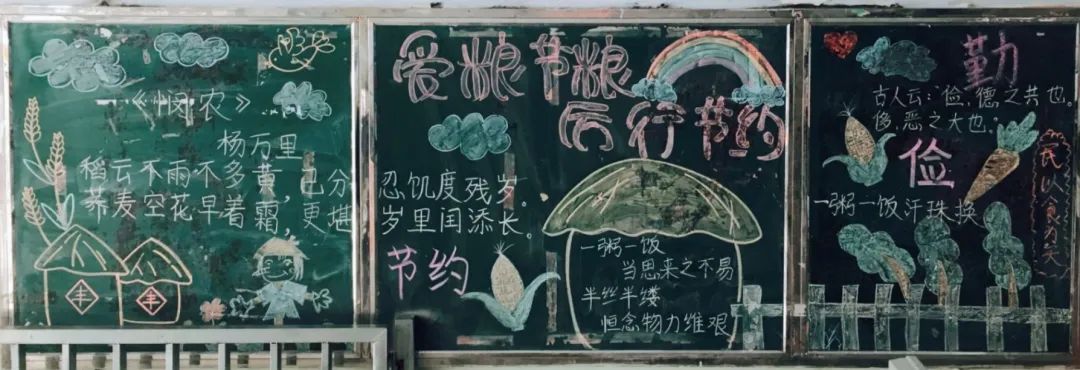 《悯农》
杨万里
稻云不雨不多黄，已分
荞麦空花早着霜，更堪
丰
丰
爱粮节粮
厉行节约
忍饥度残岁。
岁里闰添长。
节约
一粥一饭
当思来之不易
半丝半缕
恒念物力维艰
勤
古人云：俭，德之共也。
侈，恶之大也。
俭
一粥一饭汗珠换
民以食为天